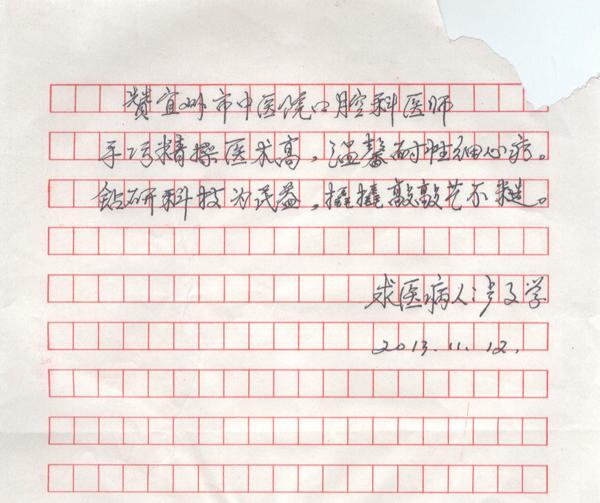 赞宜州市中医院口腔科医师
手巧精操医术高，温馨耐性细心疗。
钻研科技为民益，撬撬敲敲艺不糙。
求医病人 文学
2013.11.12.